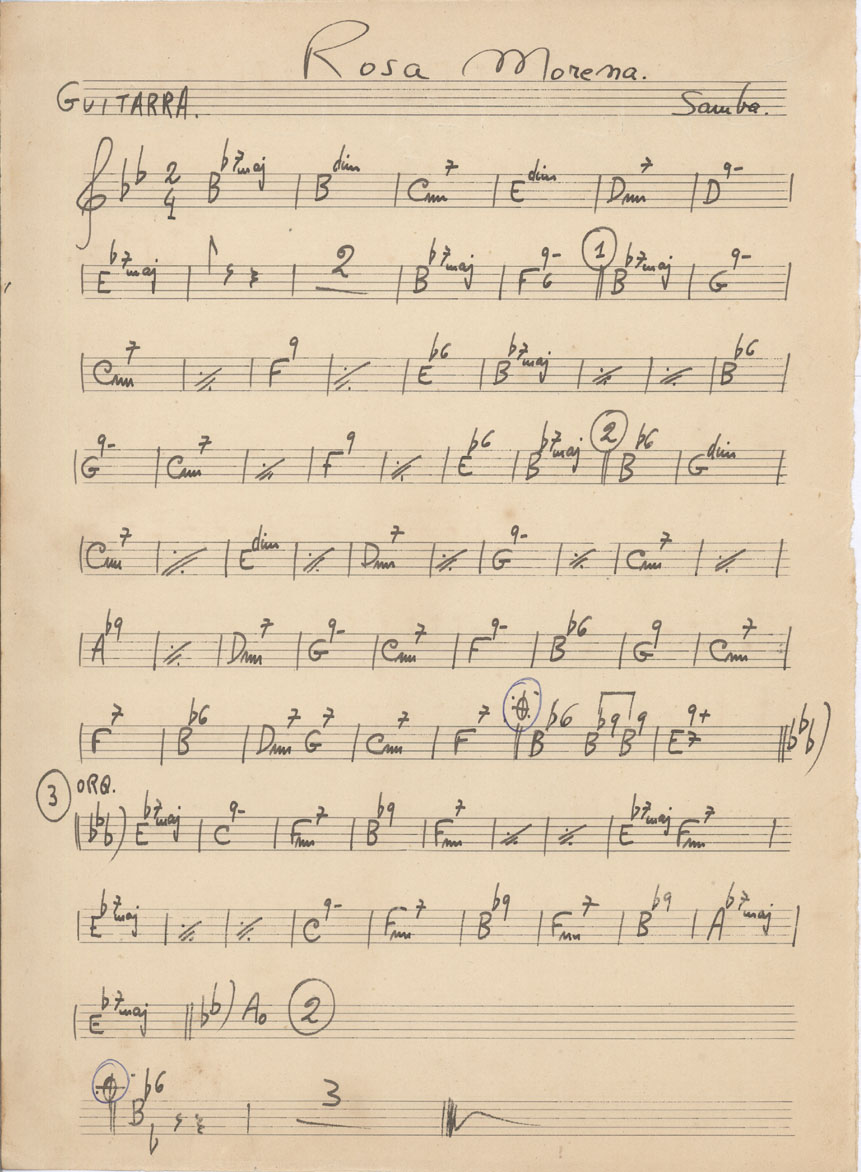 Rosa Morena.
GUITARRA. Samba.
2/4 B♭7maj | Bdim | Cm7 | Edim | Dm7 | D9- |
E♭7maj | | 2 | B♭7maj | F9-6 || ① B♭7maj | G9- |
Cm7 | ٪ | F9 | ٪ | E♭6 | B♭7maj | ٪ | ٪ | B♭6 |
G9- | Cm7 | ٪ | F9 | ٪ | E♭6 | B♭7maj || ② B♭6 | Gdim |
Cm7 | ٪ | Edim | ٪ | Dm7 | ٪ | G9- | ٪ | Cm7 | ٪ |
A♭9 | ٪ | Dm7 | G9- | Cm7 | F9- | B♭6 | G9 | Cm7 |
F7 | B♭6 | Dm7 G7 | Cm7 | F7 || 𝄌 B♭6 B♭9 B9 | E7 9+ || ♭♭♭)
③ ORQ.
♭♭♭) E♭7maj | C9- | Fm7 | B♭9 | Fm7 | ٪ | ٪ | E♭7maj Fm7 |
E♭7maj | ٪ | ٪ | C9- | Fm7 | B♭9 | Fm7 | B♭9 | A♭7maj |
E♭7maj || ♭♭) Ao ②
𝄌 B♭6 | 3 ||